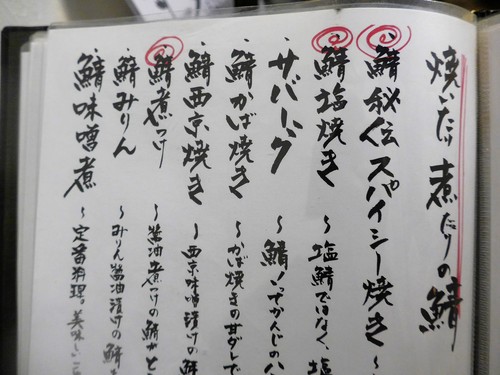 焼いたり煮たりの鯖
・鯖秘伝スパイシー焼き〜
・鯖塩焼き 〜塩鯖ではなく、塩
・サバーック 〜鯖
・鯖かば焼き 〜かば焼きの甘ダレで
・鯖西京焼き 〜西京味噌漬けの鯖
・鯖煮つけ 〜醤油煮つけの鯖
・鯖みりん 〜みりん醤油漬けの鯖
・鯖味噌煮 〜定番料理。美味しい